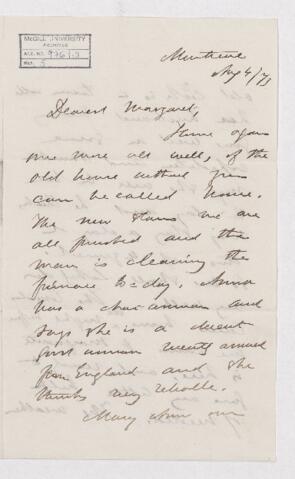 McGILL UNIVERSITY
ARCHIVES
ACC. NO. 976/3
REF. 5
Montreal
Aug 4/73
Dearest Margaret,
Home again
once more all well, if the
old house without you
can be called home.
The new stairs are
all finished and the
man is cleaning the
furnace to day. Anna
has a charwoman and
says she is a decent
woman recently arrived
from England and she
thinks very reliable.
Mary Ann our